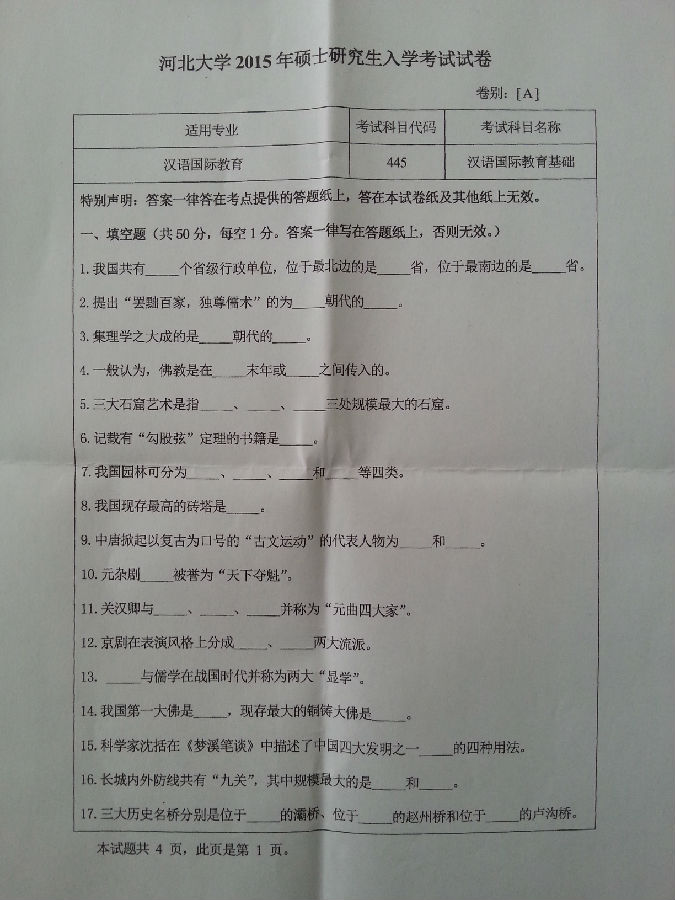 河北大学 2015 年硕士研究生入学考试试卷
卷别：[A]
适用专业 考试科目代码 考试科目名称
汉语国际教育 445 汉语国际教育基础
特别声明：答案一律答在考点提供的答题纸上，答在本试卷纸及其他纸上无效。
一、填空题（共50分，每空1分。答案一律写在答题纸上，否则无效。）
1.我国共有____个省级行政单位，位于最北边的是____省，位于最南边的是____省。
2.提出“罢黜百家，独尊儒术”的为____朝代的____。
3.集理学之大成的是____朝代的____。
4.一般认为，佛教是在____末年或____之间传入的。
5.三大石窟艺术是指____、____、____三处规模最大的石窟。
6.记载有“勾股弦”定理的书籍是____。
7.我国园林可分为____、____、____和____等四类。
8.我国现存最高的砖塔是____。
9.中唐掀起以复古为口号的“古文运动”的代表人物为____和____。
10.元杂剧____被誉为“天下夺魁”。
11.关汉卿与____、____、____并称为“元曲四大家”。
12.京剧在表演风格上分成____、____两大流派。
13. ____与儒学在战国时代并称为两大“显学”。
14.我国第一大佛是____，现存最大的铜铸大佛是____。
15.科学家沈括在《梦溪笔谈》中描述了中国四大发明之一____的四种用法。
16.长城内外防线共有“九关”，其中规模最大的是____和____。
17.三大历史名桥分别是位于____的灞桥、位于____的赵州桥和位于____的卢沟桥。
本试题共 4 页，此页是第 1 页。